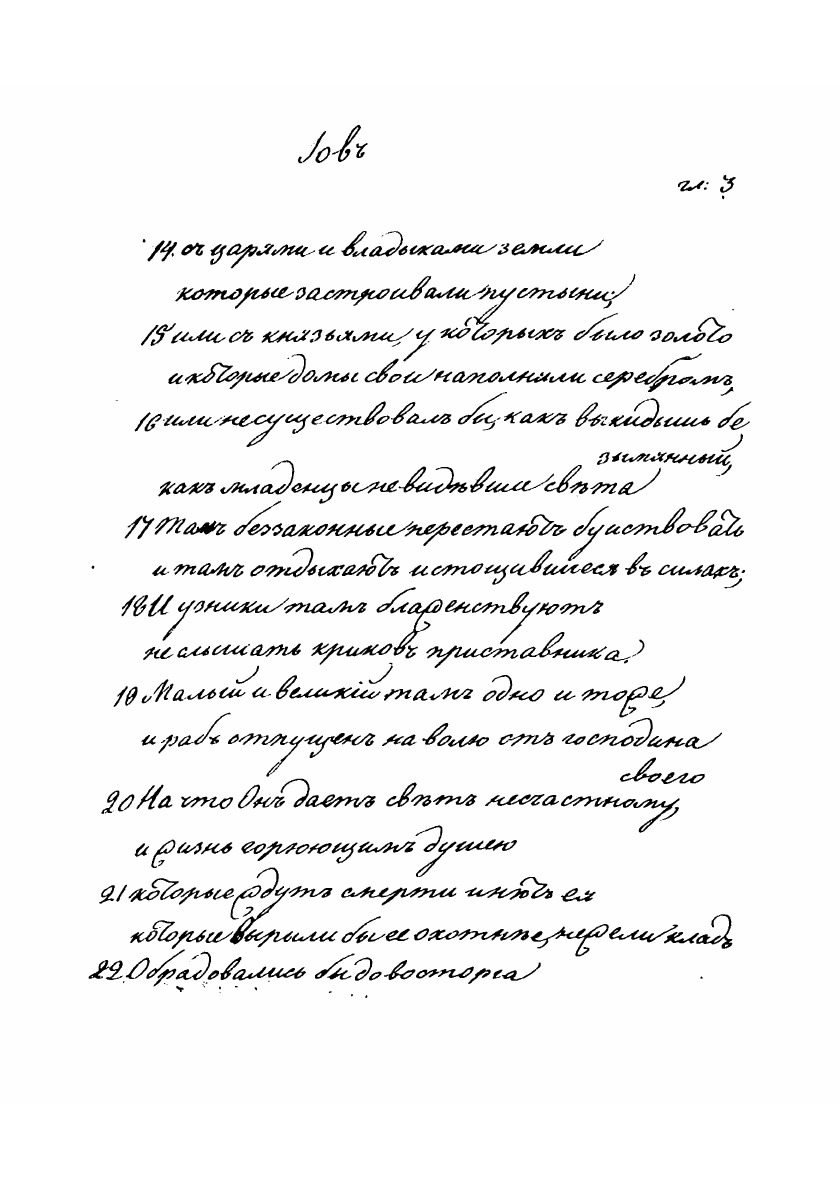 Іовъ
гл: 3
14. съ царями и владыками земли
которые застроивали пустыни;
15 или съ князьями, у которыхъ было золото
и которые домы свои наполняли серебромъ,
16 или несуществовалъ бы, какъ выкидышь бе
зымянный,
какъ младенцы невидѣвшіе свѣта
17 Тамъ беззаконные перестаютъ буйствовать
и тамъ отдыхаютъ истощившіеся въ силахъ;
18 И узники тамъ блаженствуютъ
не слышатъ криковъ приставника.
19 Малый и великій тамъ одно и тоже,
и рабъ отпущенъ на волю отъ господина
своего
20 На что Онъ даетъ свѣтъ несчастному,
и жизнь горюющимъ душею
21 которые ждутъ смерти и нѣтъ ея
которые вырыли бы ее охотнѣе, нежели кладъ
22 Обрадовались бы до восторга